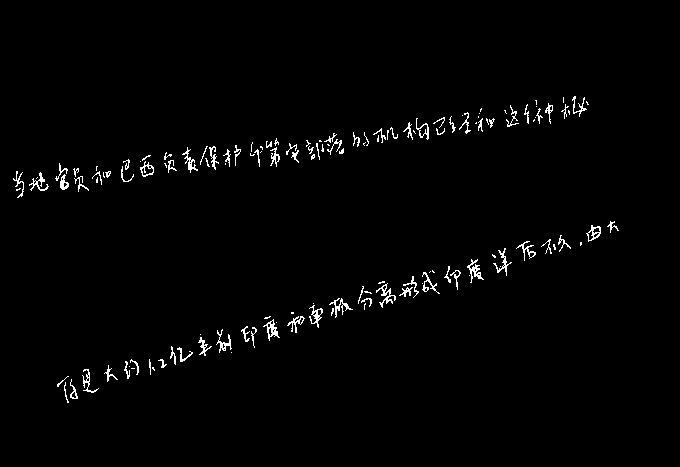 当地官员和巴西负责保护个第安部落的机构已经和这个神秘
而是大约1.2亿年前印度和南极分离形成印度洋后不久,由大